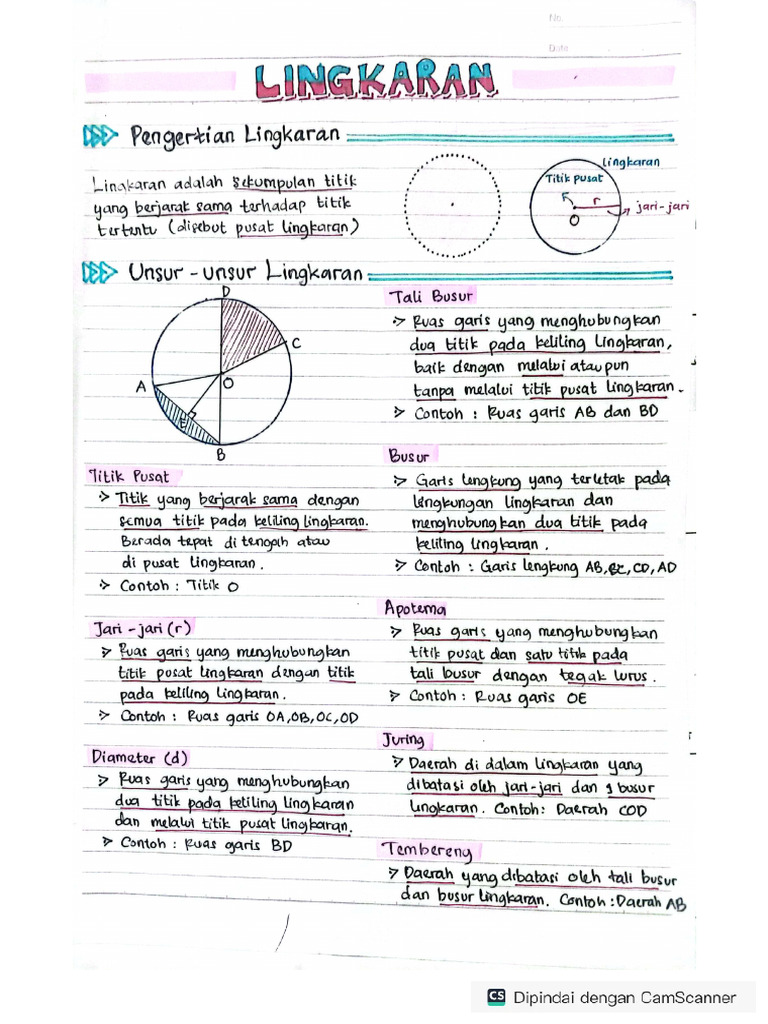 No.
Date
LINGKARAN
Pengertian Lingkaran
Lingkaran adalah sekumpulan titik
yang berjarak sama terhadap titik
tertentu (disebut pusat lingkaran)
lingkaran
Titik pusat
r
jari-jari
O
Unsur-unsur Lingkaran
D
C
A
O
E
B
Titik Pusat
Titik yang berjarak sama dengan
semua titik pada keliling lingkaran.
Berada tepat di tengah atau
di pusat lingkaran.
Contoh : Titik O
Jari-jari (r)
Ruas garis yang menghubungkan
titik pusat lingkaran dengan titik
pada keliling lingkaran.
Contoh : Ruas garis OA, OB, OC, OD
Diameter (d)
Ruas garis yang menghubungkan
dua titik pada keliling lingkaran
dan melalui titik pusat lingkaran.
Contoh : Ruas garis BD
Tali Busur
Ruas garis yang menghubungkan
dua titik pada keliling lingkaran,
baik dengan melalui ataupun
tanpa melalui titik pusat lingkaran.
Contoh : Ruas garis AB dan BD
Busur
Garis lengkung yang terletak pada
lengkungan lingkaran dan
menghubungkan dua titik pada
keliling lingkaran.
Contoh : Garis lengkung AB, BC, CD, AD
Apotema
Ruas garis yang menghubungkan
titik pusat dan satu titik pada
tali busur dengan tegak lurus.
Contoh : Ruas garis OE
Juring
Daerah di dalam lingkaran yang
dibatasi oleh jari-jari dan 1 busur
lingkaran. Contoh: Daerah COD
Tembereng
Daerah yang dibatasi oleh tali busur
dan busur lingkaran. Contoh : Daerah AB
CS Dipindai dengan CamScanner